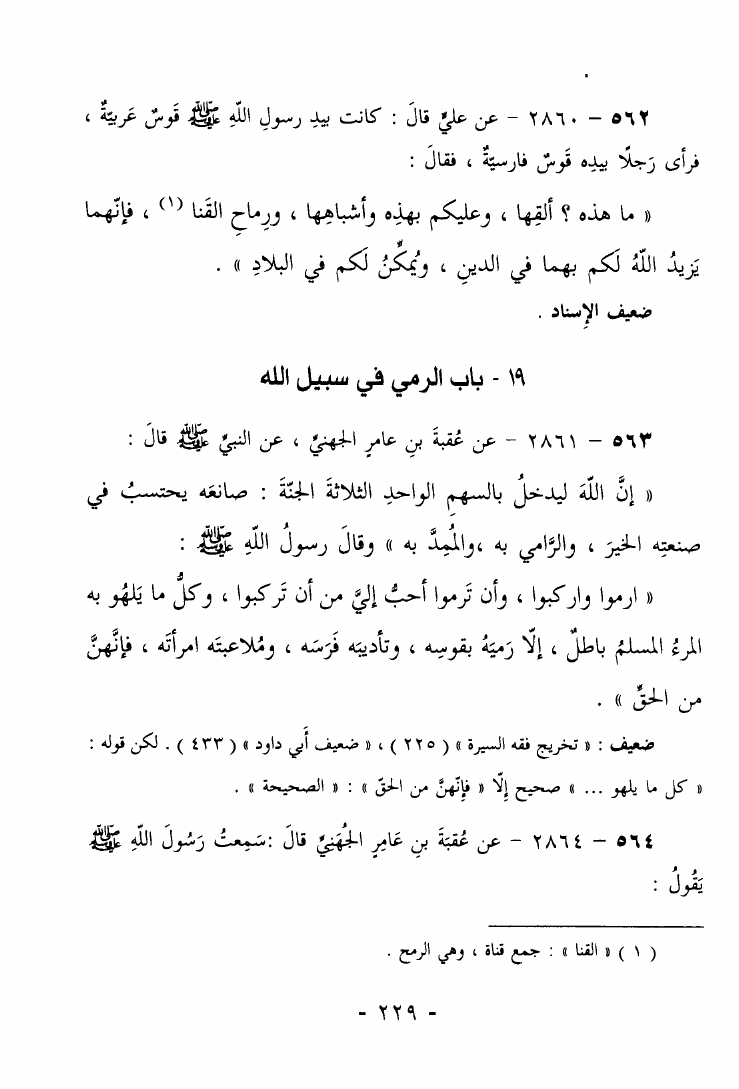 ٥٦٢ – ٢٨٦٠ – عن عليٍّ قالَ : كانت بيدِ رسولِ اللّهِ ﷺ قَوسٌ عَربيّةٌ ،
فرأى رَجلًا بيدِه قَوسٌ فارسيّةٌ ، فقالَ :
« ما هذه ؟ ألقِها ، وعليكم بهذِه وأشباهِها ، ورِماحِ القَنا (١) ، فإنّهما
يَزيدُ اللّهُ لَكم بهما في الدينِ ، ويُمكِّنُ لَكم في البلادِ » .
ضعيف الإسناد .
١٩ - باب الرمي في سبيل الله
٥٦٣ – ٢٨٦١ – عن عُقبةَ بنِ عامرٍ الجهنيِّ ، عن النبيِّ ﷺ قالَ :
« إنَّ اللّهَ ليدخلُ بالسهمِ الواحدِ الثلاثةَ الجنّةَ : صانعَه يحتسبُ في
صنعتِه الخيرَ ، والرَّامي به ،والمُمِدَّ به » وقالَ رسولُ اللّهِ ﷺ :
« ارموا واركبوا ، وأن تَرموا أحبُّ إليَّ من أن تَركبوا ، وكلُّ ما يَلهُو به
المرءُ المسلمُ باطلٌ ، إلّا رَميَهُ بقوسِه ، وتأديبَه فَرَسَه ، ومُلاعبتَه امرأتَه ، فإنَّهنَّ
من الحقِّ » .
ضعيف : « تخريج فقه السيرة » ( ٢٢٥ ) ، « ضعيف أبي داود » ( ٤٣٣ ) . لكن قوله :
« كل ما يلهو ... » صحيح إلّا « فإنّهنَّ من الحقّ » : « الصحيحة » .
٥٦٤ – ٢٨٦٤ – عن عُقبَةَ بنِ عَامِرٍ الجُهَنِيِّ قالَ :سَمِعتُ رَسُولَ اللّهِ ﷺ
يَقُولُ :
( ١ ) « القنا » : جمع قناة ، وهي الرمح .
- ٢٢٩ -